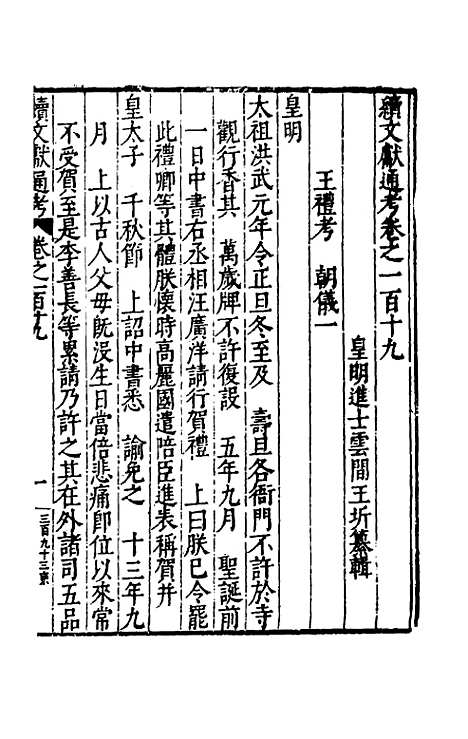 續文獻通考卷之一百十九
皇明進士雲間王圻纂輯
王禮考　朝儀一
皇明
太祖洪武元年令正旦冬至及　壽旦各衙門不許於寺
觀行香其　萬歲牌不許復設　五年九月　聖誕前
一日中書右丞相汪廣洋請行賀禮　上曰朕已令罷
此禮卿等其體朕懷時高麗國遣陪臣進表稱賀并
皇太子　千秋節　上詔中書悉　諭免之　十三年九
月　上以古人父母既沒生日當倍悲痛即位以來常
不受賀至是李善長等累請乃許之其在外諸司五品
續文獻通考　卷之一百十九　一　三百九十三